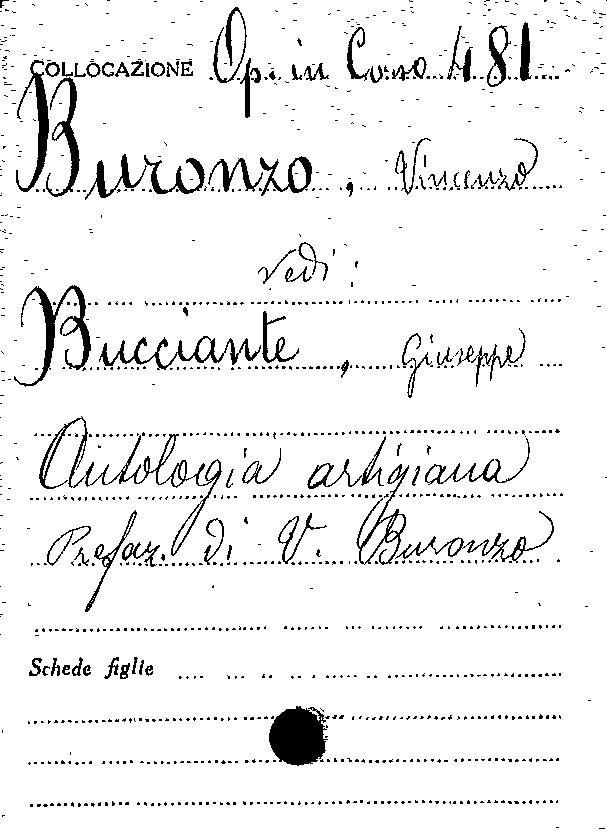 COLLOCAZIONE Op. in Corso 481
Buronzo, Vincenzo
vedi:
Bucciante, Giuseppe
Antologia artigiana
Prefaz. di V. Buronzo
Schede figlie